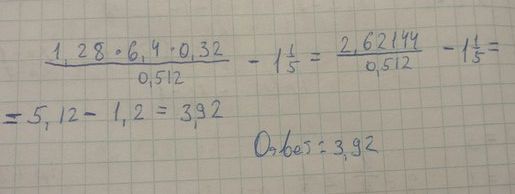 1,28 · 6,4 · 0,32 / 0,512 - 1 1/5 = 2,62144 / 0,512 - 1 1/5 =
= 5,12 - 1,2 = 3,92
Ответ = 3,92